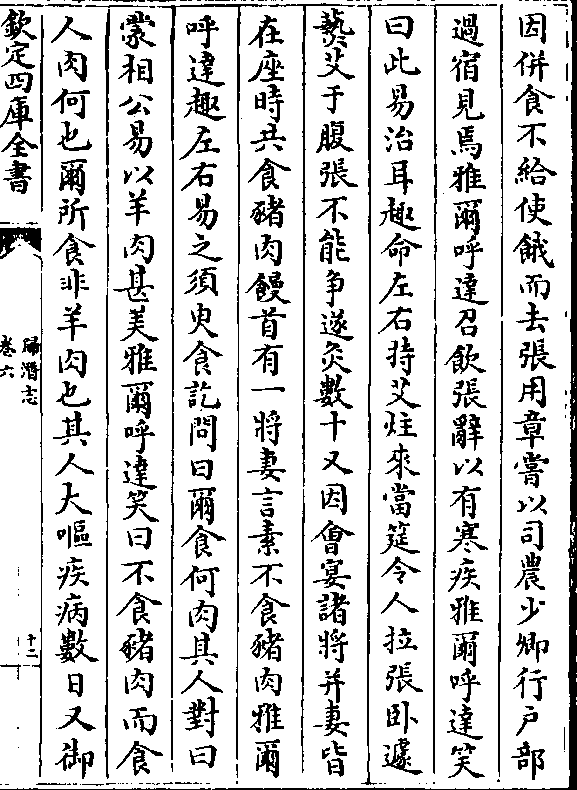 因併食不給使餓而去張用章嘗以司農少卿行戸部
過宿見焉雅爾呼達召飲張辭以有寒疾雅爾呼達笑
曰此易治耳趣命左右持艾炷來當筵令人拉張卧遽
爇艾于腹張不能争遂灸數十又因會宴諸將并妻皆
在座時共食豬肉饅首有一將妻言素不食豬肉雅爾
呼達趣左右易之須臾食訖問曰爾食何肉其人對曰
蒙相公易以羊肉甚美雅爾呼達笑曰不食豬肉而食
人肉何也爾所食非羊肉也其人大嘔疾病數日又御
欽定四庫全書
歸潛志
卷六
十二